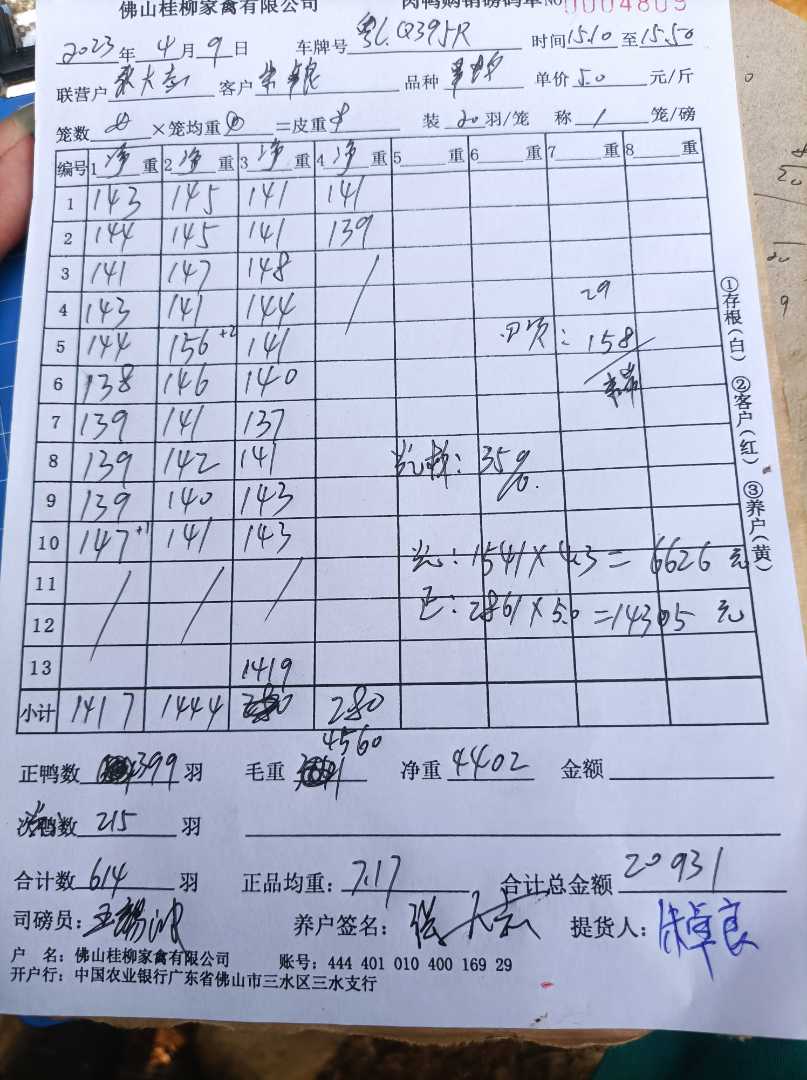 佛山桂柳家禽有限公司 肉鸭购销磅码单 No 0004809
2023年4月9日 车牌号 粤L Q395R 时间15.10至15.50
联营户 客户 品种 单价 5.0 元/斤
笼数 ×笼均重 =皮重 装 20 羽/笼 称 1 笼/磅
编号 1 净 重 2 净 重 3 净 重 4 净 重 5 重 6 重 7 重 8 重
1 143 145 141 141
2 144 145 141 139
3 141 147 148 /
4 143 141 144 29
5 144 156+2 141 158
6 138 146 140
7 139 141 137
8 139 142 141 35%.
9 139 140 143
10 147+1 141 143
11 1541×4.3=6626元
12 正:2861×5.0=14305元
13 1419
小计 1417 1444 280
4560
正鸭数 399 羽 毛重 净重 4402 金额
次鸭数 215 羽
合计数 614 羽 正品均重: 7.17 合计总金额 20931
司磅员: 养户签名: 张大 提货人: 朱卓良
户 名: 佛山桂柳家禽有限公司 账号: 444 401 010 400 169 29
开户行: 中国农业银行广东省佛山市三水区三水支行
①存根(白) ②客户(红) ③养户(黄)